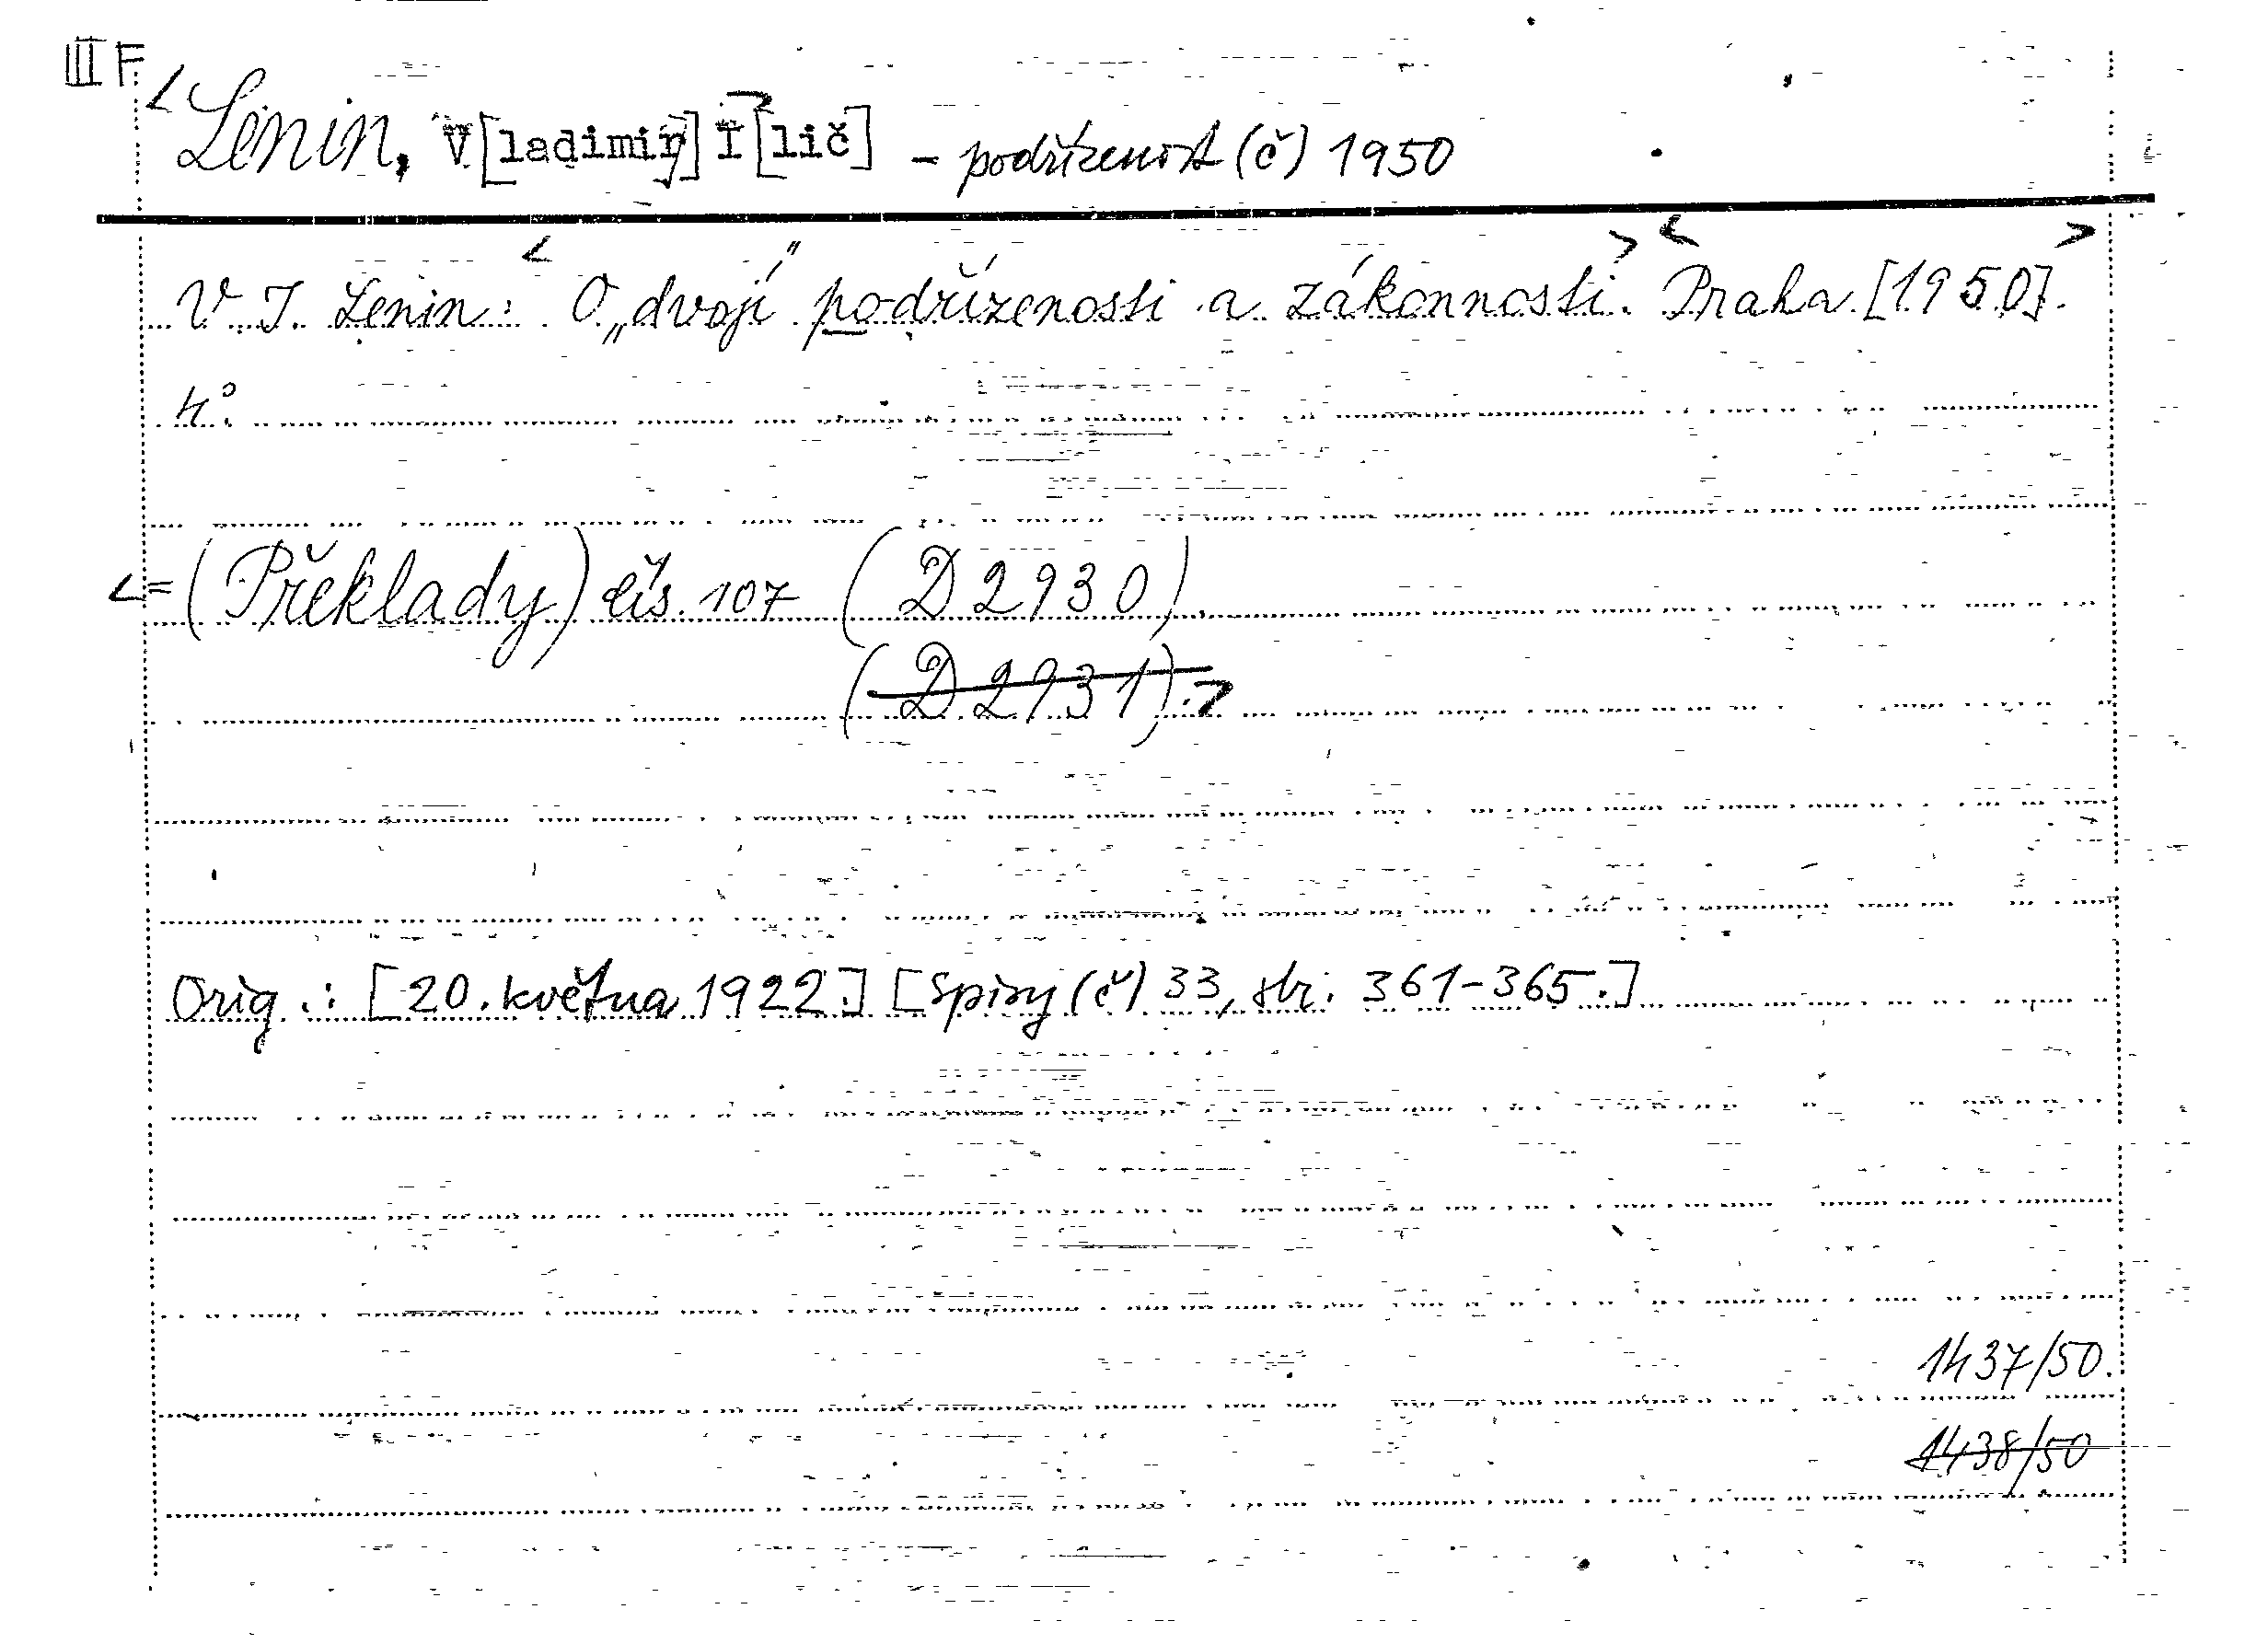 III F
<Lenin, V[ladimir] I[lič] – podřízenost (č) 1950
V. I. Lenin: <O „dvojí" podřízenosti a zákonnosti.> <Praha [1950].>
4°.
<=(Překlady) čís. 107 (D 2930)
(D 2931).>
Orig.: [20. května 1922.] [Spisy (č) 33, str. 361-365.]
1437/50.
1438/50